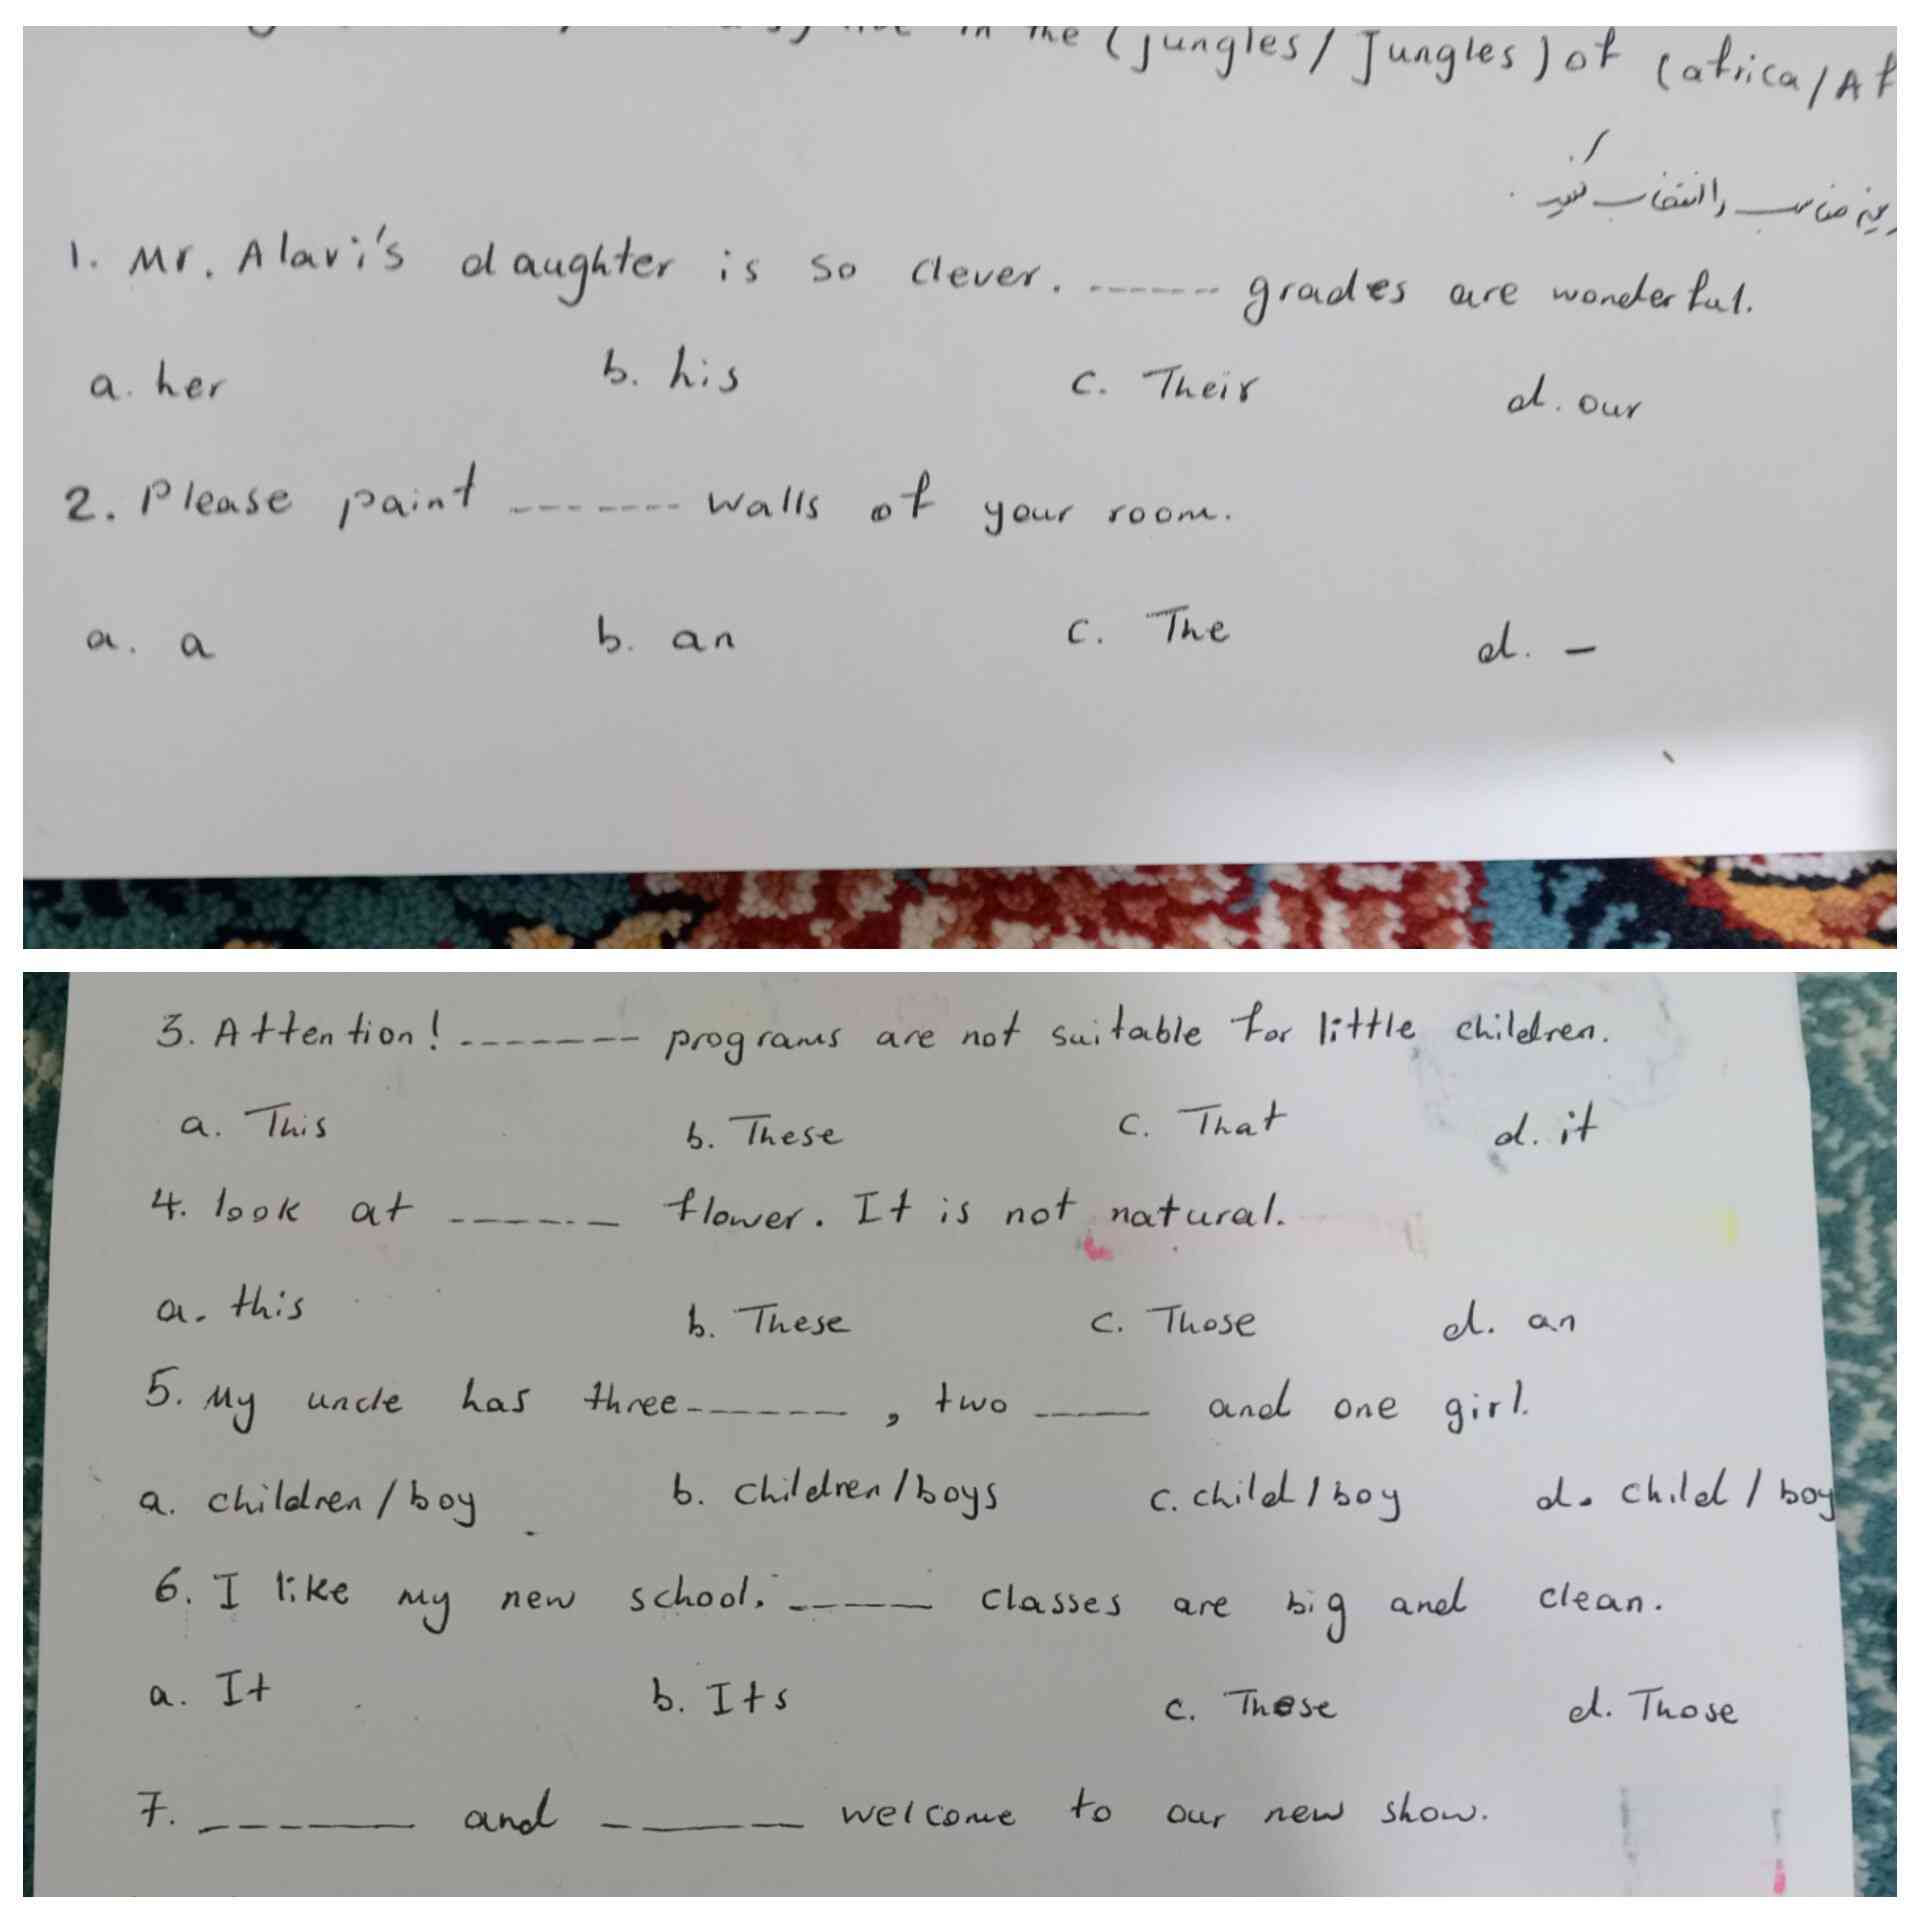 in the (jungles/Jungles) of (africa/Af
مناسب را انتخاب کنید.
1. Mr. Alavi's daughter is so clever. ------ grades are wonderful.
a. her b. his c. Their d. our
2. Please paint ------- walls of your room.
a. a b. an c. The d. -
3. Attention! ------- programs are not suitable for little children.
a. This b. These c. That d. it
4. look at ------ flower. It is not natural.
a. this b. These c. Those d. an
5. My uncle has three ------, two ---- and one girl.
a. children/boy b. children/boys c. child/boy d. child/boy
6. I like my new school. ----- classes are big and clean.
a. It b. Its c. These d. Those
7. ------ and ------ welcome to our new show.